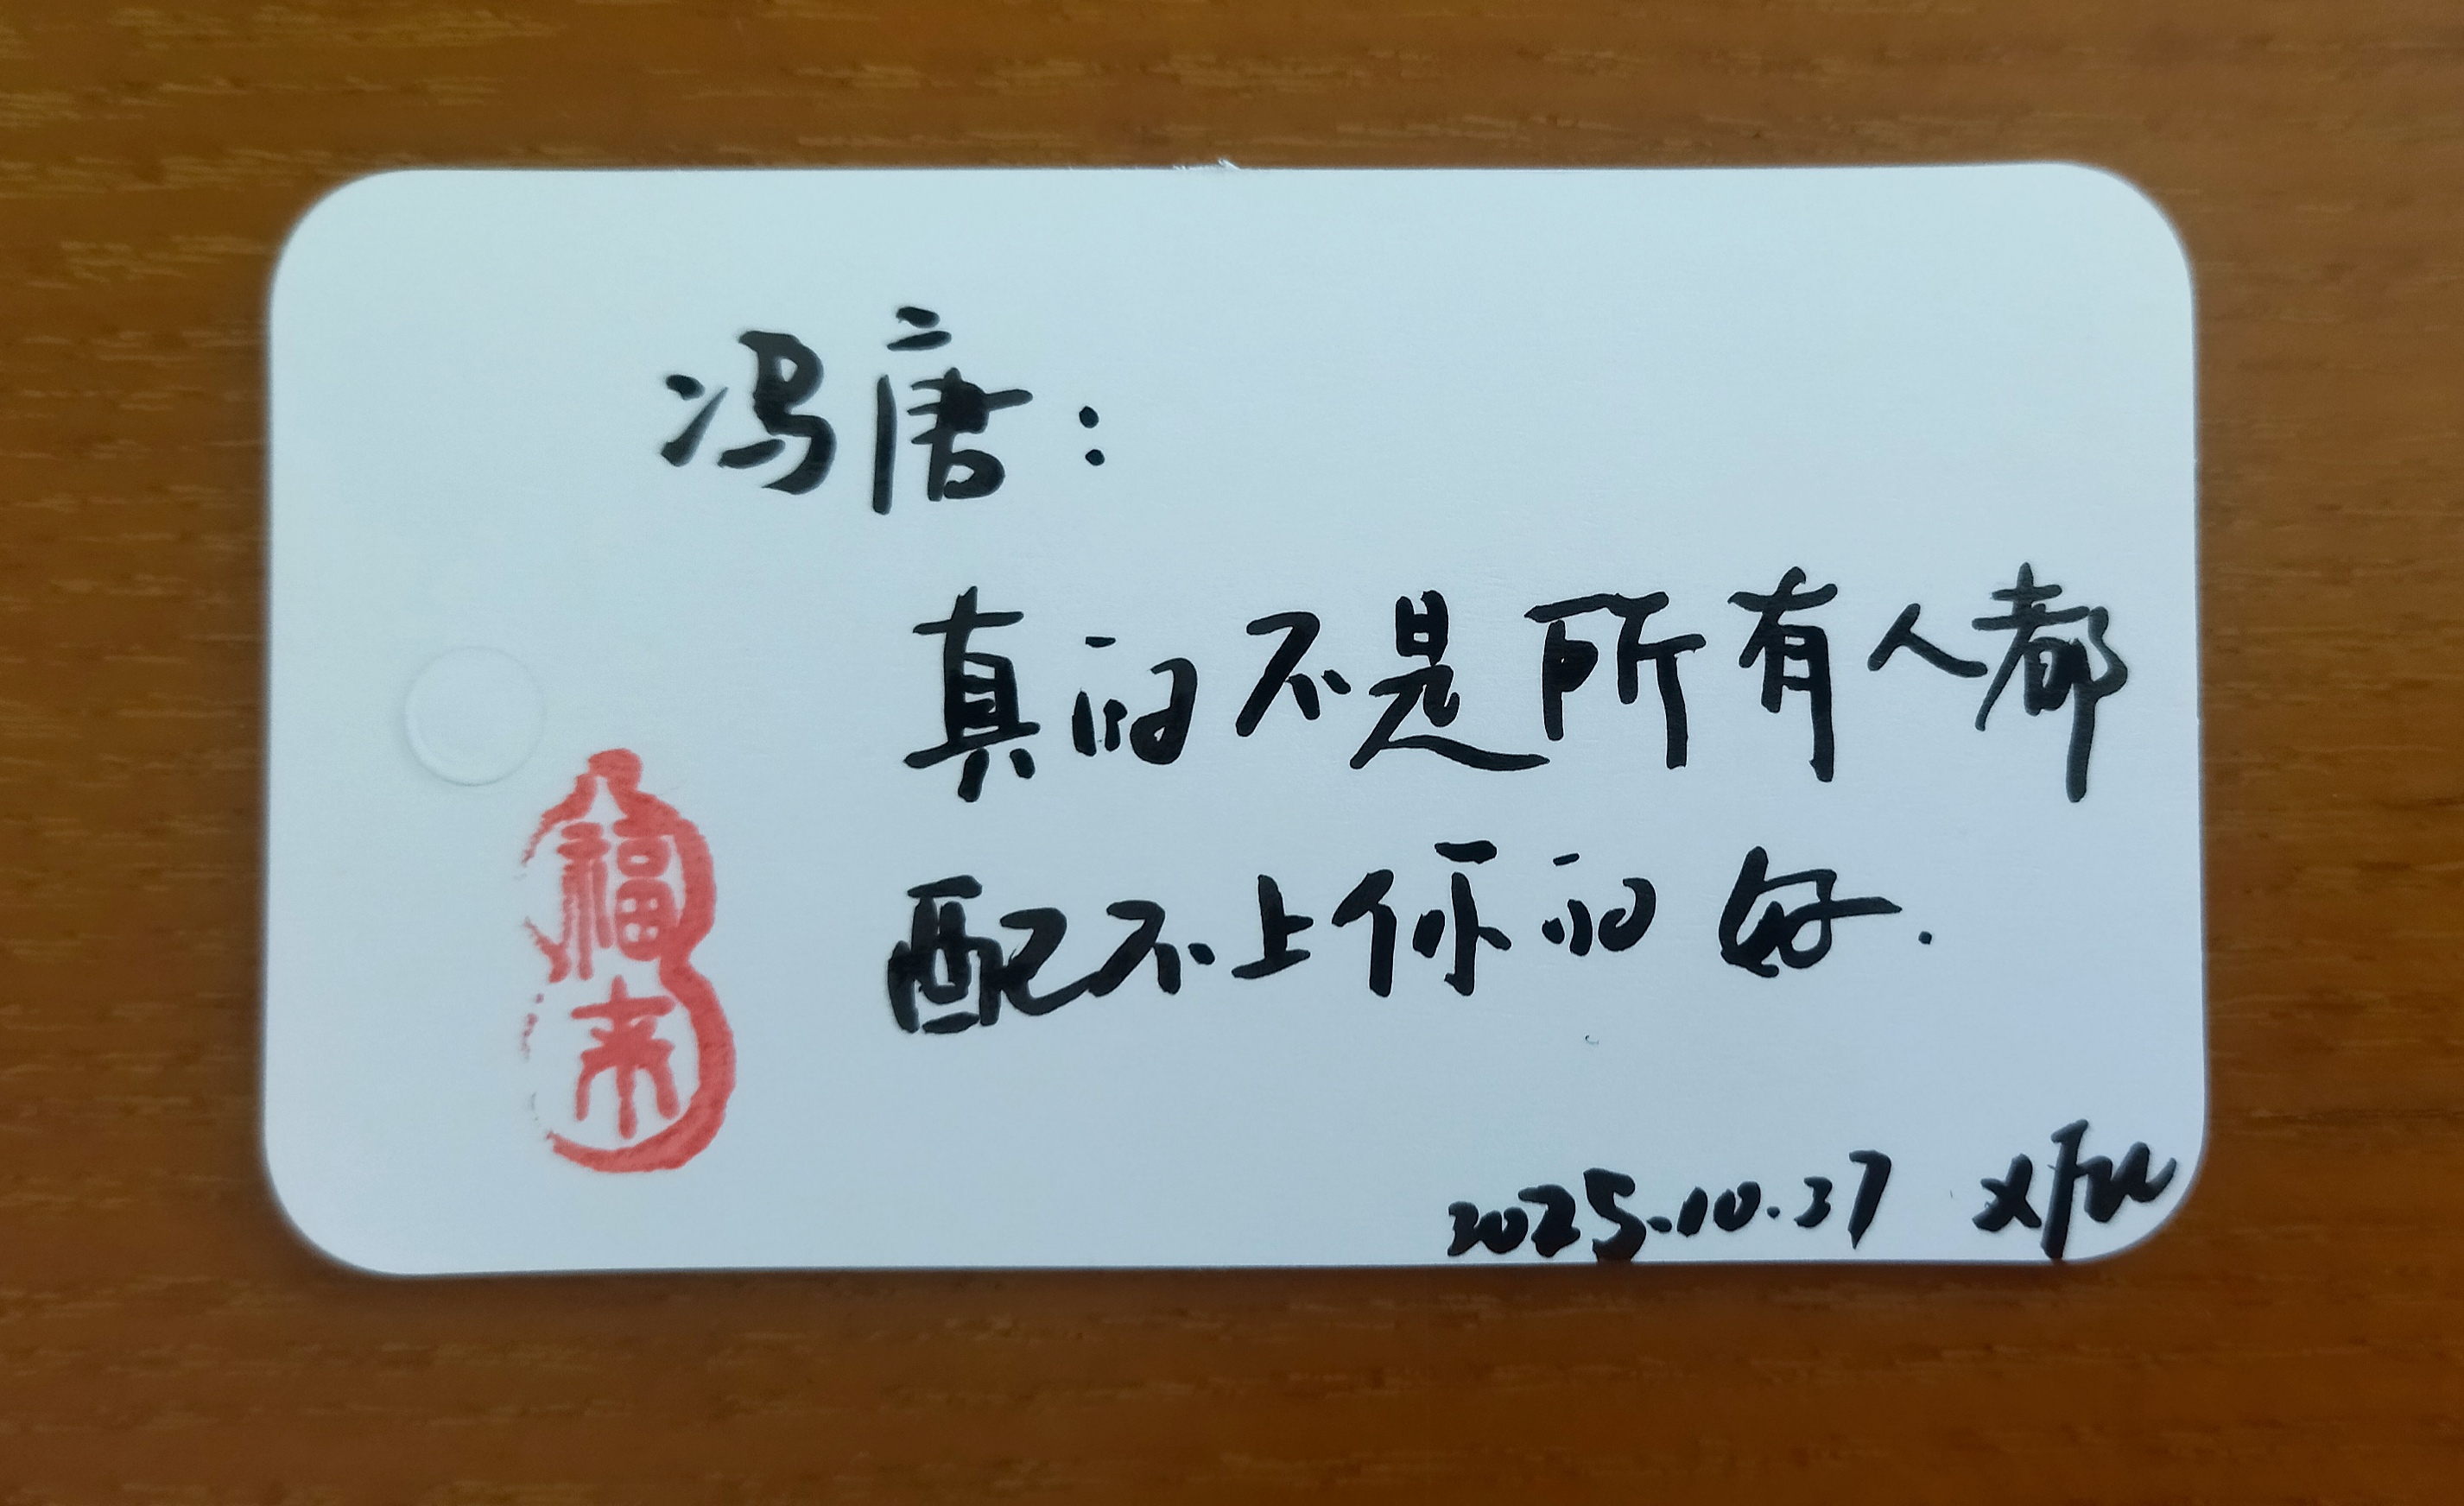 冯唐：
真的不是所有人都
配不上你的好.
福来
2025.10.27